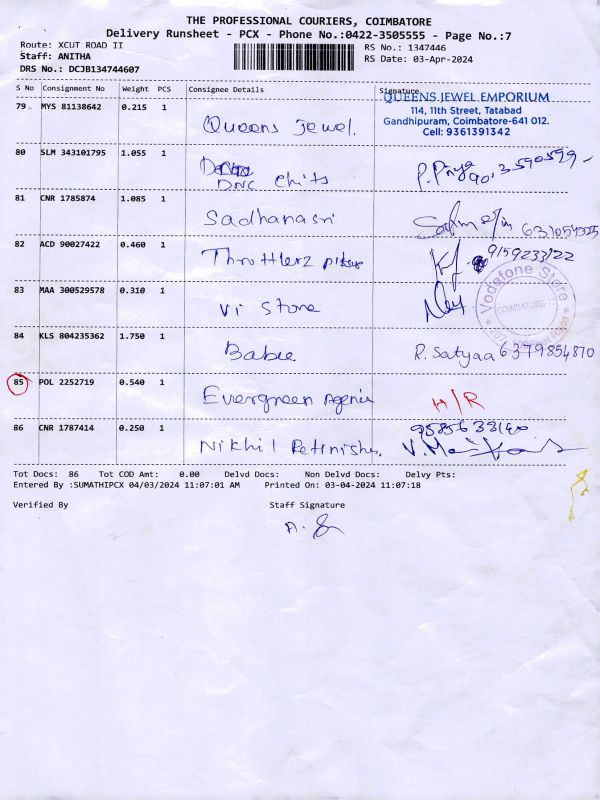 THE PROFESSIONAL COURIERS, COIMBATORE
Delivery Runsheet - PCX - Phone No.:0422-3505555 - Page No.:7
Route: XCUT ROAD II
RS No.: 1347446
Staff: ANITHA
RS Date: 03-Apr-2024
DRS No.: DCJB134744607
S No Consignment No Weight PCS Consignee Details Signature
QUEENS JEWEL EMPORIUM
114, 11th Street, Tatabad
Gandhipuram, Coimbatore-641 012.
Cell: 9361391342
79 MYS 81138642 0.215 1 Queens Jewel.
80 SLM 343101795 1.055 1 DNC Chits P. Priya
81 CNR 1785874 1.085 1 Sadhanasri
82 ACD 90027422 0.460 1 Throttlerz
83 MAA 300529578 0.310 1 Vi Store
Vodafone Store
84 KLS 804235362 1.750 1 Babie R. Satyaa 6379854870
85 POL 2252719 0.540 1 Evergreen Agencie H/R
86 CNR 1787414 0.250 1 Nikhil
Tot Docs: 86 Tot COD Amt: 0.00 Delvd Docs: Non Delvd Docs: Delvy Pts:
Entered By :SUMATHIPCX 04/03/2024 11:07:01 AM Printed On: 03-04-2024 11:07:18
Verified By Staff Signature